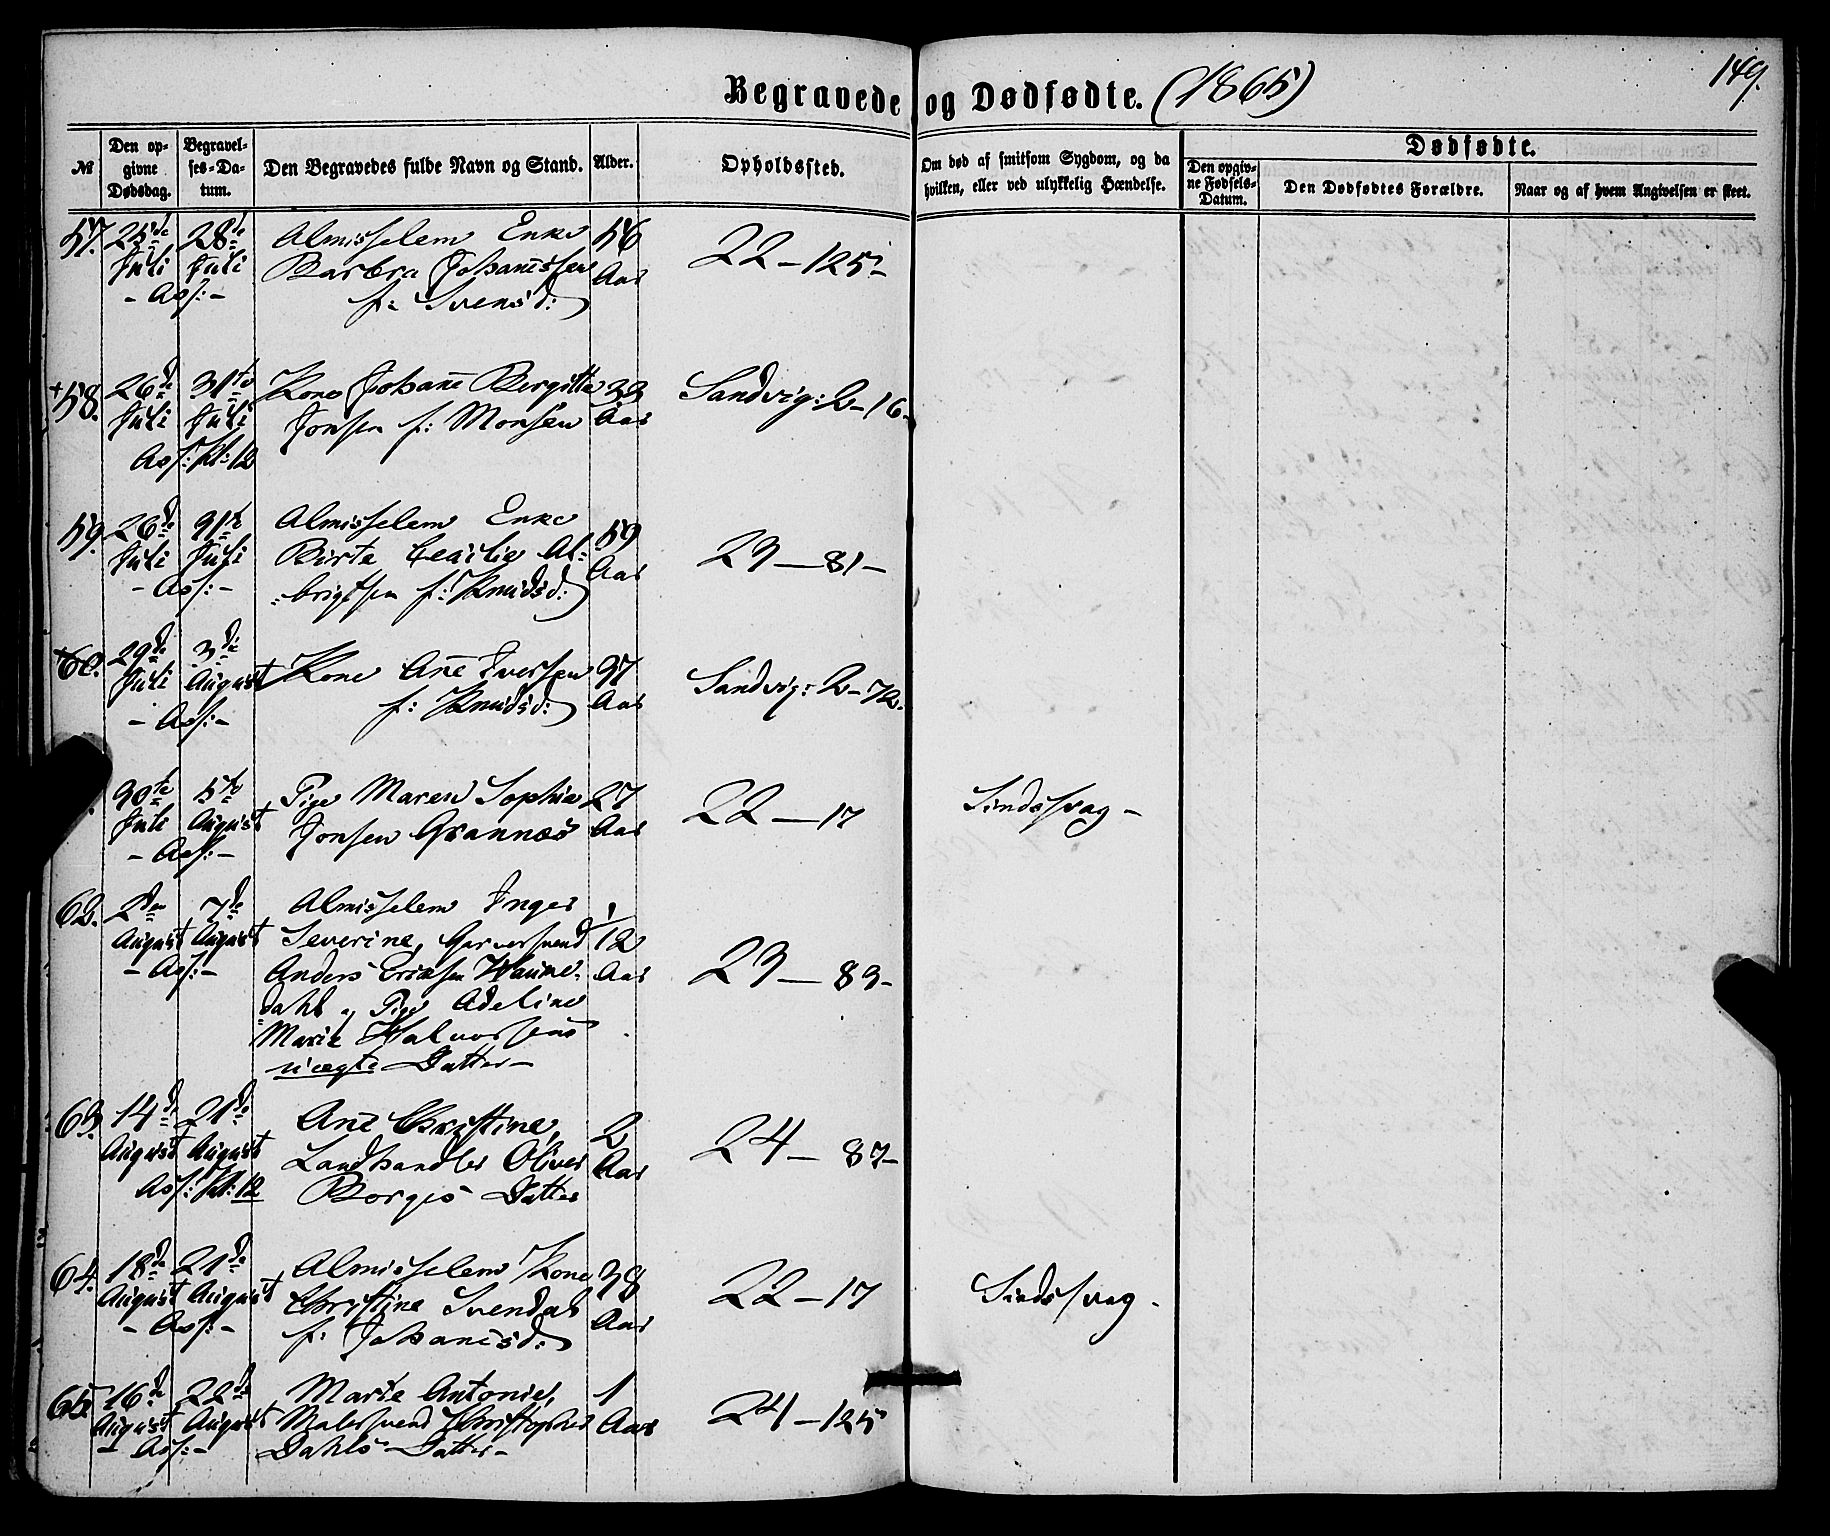 149.
Begravede og Dødfødte. (1865)
№
Den opgivne Dødsdag.
Begravelses-Datum.
Den Begravedes fulde Navn og Stand.
Alder.
Opholdssted.
Om død af smitsom Sygdom, og da hvilken, eller ved ulykkelig Hændelse.
Dødfødte.
Den opgivne Fødsels-Datum.
Den Dødfødtes Forældre.
Naar og af hvem Angivelsen er skeet.
57. 25de 28de Almisselem Enke 56 22 – 125 –
Juli Juli Barbra Johannessen Aar
– Ass: – f: Svensd:
+58. 26de 31te Kone Johanne Bergitte 33 Sandvig: 2 – 16 –
Juli Juli Jonsen f: Monsen Aar
Ass: Kl: 12
59. 26de 31te Almisselem Enke 59 23 – 81 –
Juli Juli Birte Cecilie Al= Aar
– Ass: – =brigtsen f: Knudsd:
60. 29de 3die Kone Anne Iversen 37 Sandvig: 2 – 72.
Juli August f: Knudsd: Aar
– Ass: –
30te 5te Pige Maren Sophie 27 22 – 17 Sindssvag –
Juli August Jonsen Grannæs Aar
– Ass: –
62. 2den 7de Almisselem Inger 1/12 23 – 83 –
August August Severine, Garversvend Aar
– Ass: – Anders Eriksen
=dahl og Pige Adeline
Marie Halvorsens
uægte Datter –
63. 14de 21de Ane Christine, 2 24 – 87 –
August August Landhandler Oliver Aar
Ass: Kl: 12 Borges Datter
64. 18de 21de Almisselem Kone 38 22 – 17 Sindssvag –
August August Christine Svendal Aar
– Ass: – f: Johannesd:
65. 16de 22de Marte Antonie, 1 24 – 125
August August Malersvend Christopher Aar
– Ass: – Dahls Datter –